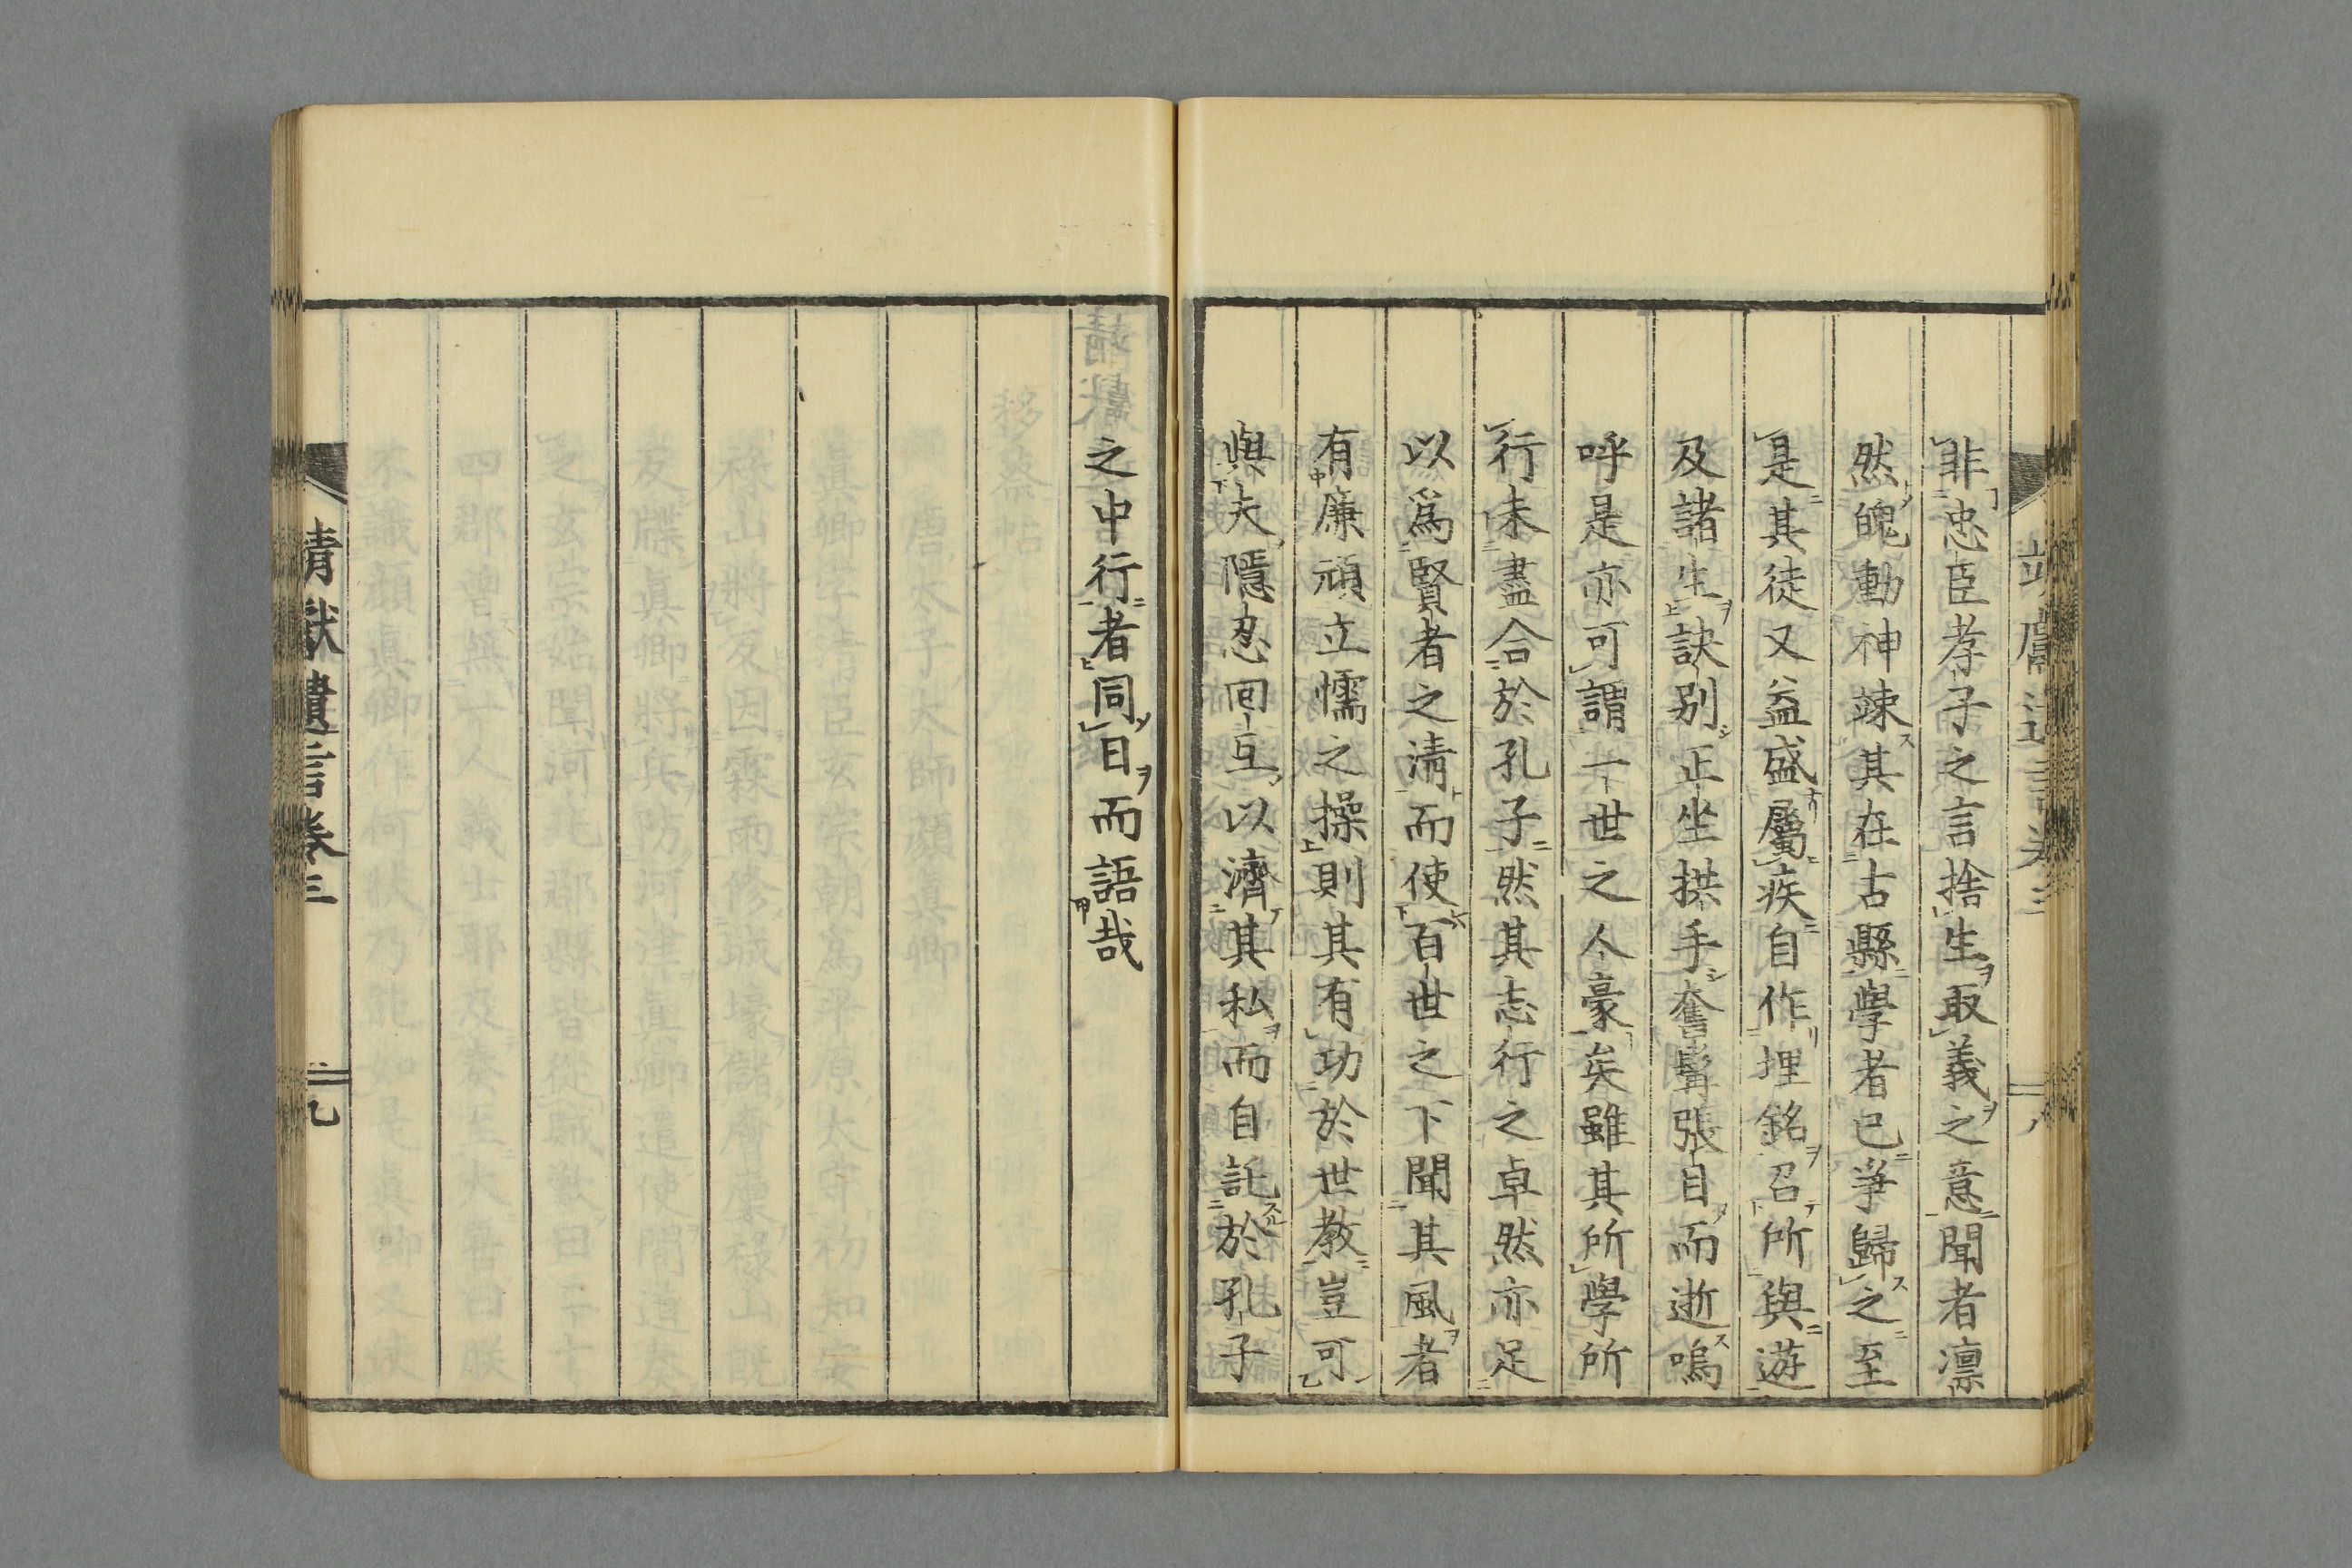 非忠臣孝子之言捨生取義之意聞者凛
然魄動神竦其在古縣學者已爭歸之至
是其徒又益盛屬疾自作埋銘召所與遊
及諸生訣別正坐拱手奮髯張目而逝嗚
呼是亦可謂一世之人豪矣雖其所學所
行未盡合於孔子然其志行之卓然亦足
以爲賢者之淸而使百世之下聞其風者
有廉頑立懦之操則其有功於世教豈可
與夫隱忍回互以濟其私而自託於孔子
之中行者同日而語哉
靖獻遺言卷三